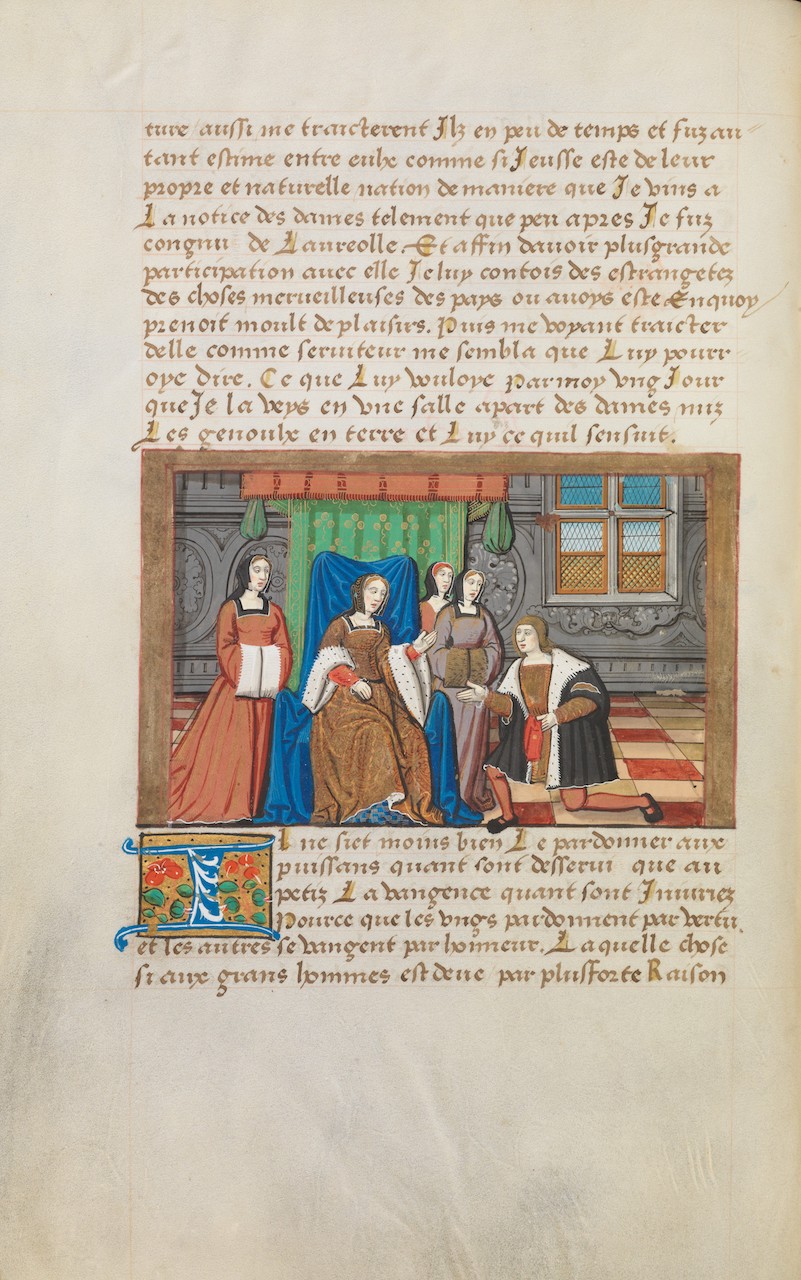 ture aussi me traicterent Ilz en peu de temps et fuz au
tant estime entre eulx comme si Jeusse este de leur
propre et naturelle nation de maniere que Je vins a
La notice des dames telement que peu apres Je fuz
congnu de Laureolle. Et affin davoir plusgrande
participation avec elle Jeluy contois des estrangetez
des choses merveilleuses des pays ou avoys este Enquoy
prenoit moult de plaisirs. Puis me voyant traicter
delle comme serviteur me sembla que Luy pourr
oye dire. Ce que Luy vouloye Parmoy ung Jour
que Je la veys en vne salle apart des dames miz
Les genoulx en terre et Luy ce quil sensuit.
Il ne siet moins bien Le pardonner aux
puissans quant sont desservi que au
petiz La vangence quant sont Injuriez
Pource que les ungs pardonnent par vertu
et les autres se vangent par honneur. Laquelle chose
si aux grans hommes est deue par plusforte Raison